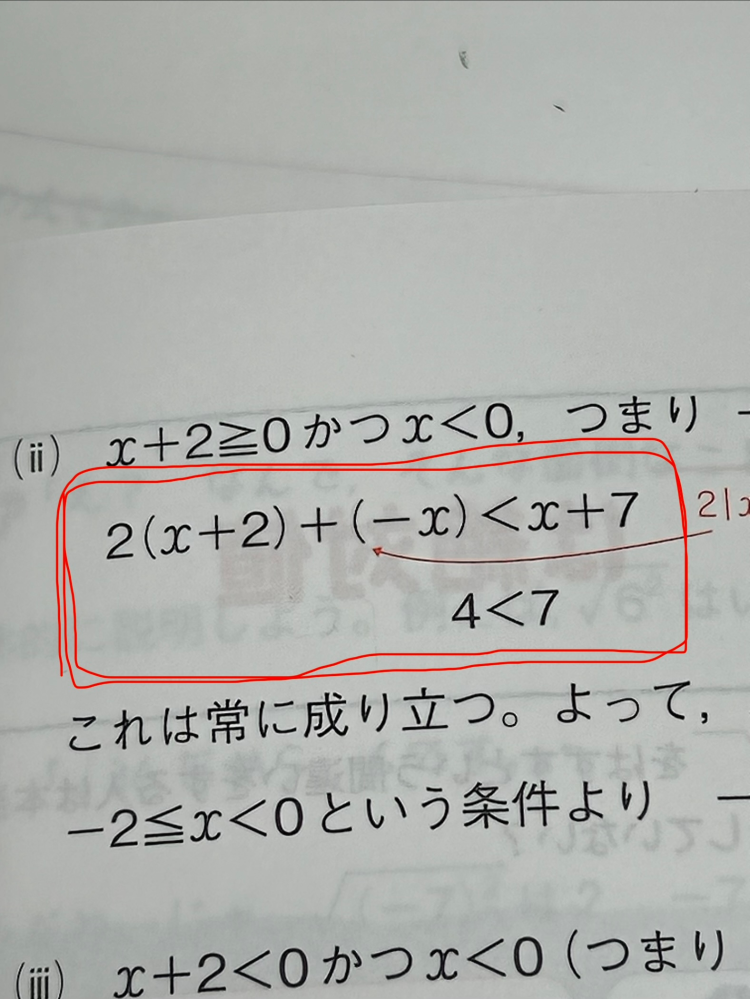 (ii) x+2≧0かつx<0, つまり −
2(x+2)+(−x)<x+7
2|x
4<7
これは常に成り立つ。よって,
−2≦x<0という条件より −
(iii) x+2<0かつx<0(つまり